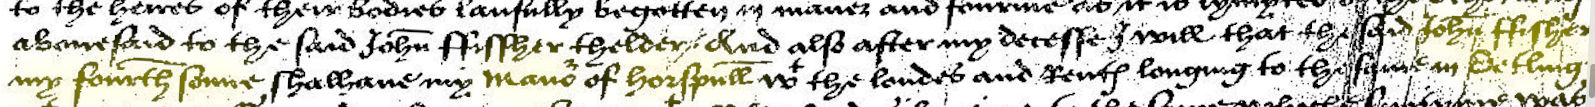 to the heires of their bodies laufully begotten in maner and fourme as it is lymyted
abouesaid to the said John ffissher thelder / And also after my decesse I will that the said John ffissher
my fourth sonne shall haue my Mano&#x27;r of Horspull wt the londes and Rentes longing to the same in Detling